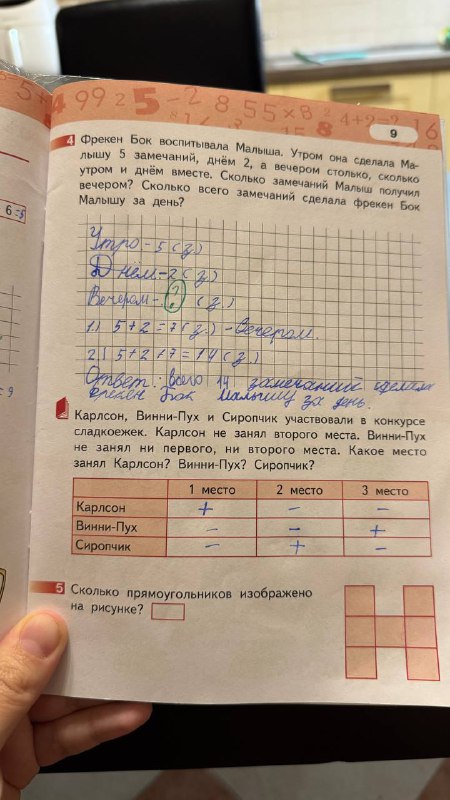 5+4 99 2 5 -2 8 55×8 2 4+2=2 16
9
6=8
= 9
4 Фрекен Бок воспитывала Малыша. Утром она сделала Ма-
лышу 5 замечаний, днём 2, а вечером столько, сколько
утром и днём вместе. Сколько замечаний Малыш получил
вечером? Сколько всего замечаний сделала фрекен Бок
Малышу за день?
Утро - 5 (з.)
Днём - 2 (з.)
Вечером - ? (з.)
1) 5+2=7(з.) - вечером.
2) 5+2+7=14(з.)
Ответ: всего 14 замечаний сделала
фрекен Бок Малышу за день.
Карлсон, Винни-Пух и Сиропчик участвовали в конкурсе
сладкоежек. Карлсон не занял второго места. Винни-Пух
не занял ни первого, ни второго места. Какое место
занял Карлсон? Винни-Пух? Сиропчик?
1 место 2 место 3 место
Карлсон + - -
Винни-Пух - - +
Сиропчик - + -
5 Сколько прямоугольников изображено
на рисунке?